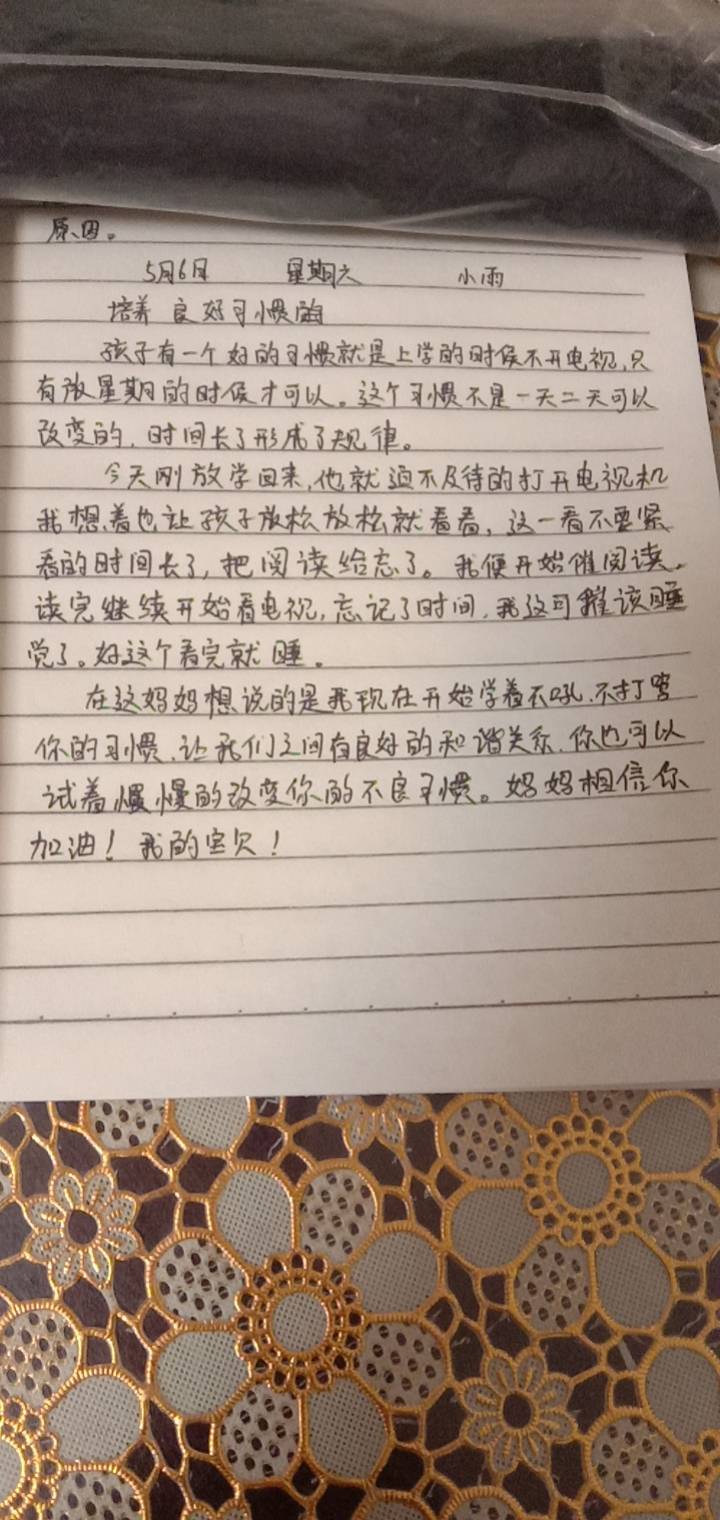 原因。
5月6日 星期六 小雨
培养良好习惯的
孩子有一个好的习惯就是上学的时候不开电视,只
有放星期的时候才可以。这个习惯不是一天二天可以
改变的,时间长了形成了规律。
今天刚放学回来,他就迫不及待的打开电视机
我想着也让孩子放松放松就看看,这一看不要紧
看的时间长了,把阅读给忘了。我便开始催阅读。
读完继续开始看电视,忘记了时间,我这可催该睡
觉了。好这个看完就睡。
在这妈妈想说的是我现在开始学着不吼.不打骂
你的习惯.让我们之间有良好的和谐关系.你也可以
试着慢慢的改变你的不良习惯。妈妈相信你
加油!我的宝贝!